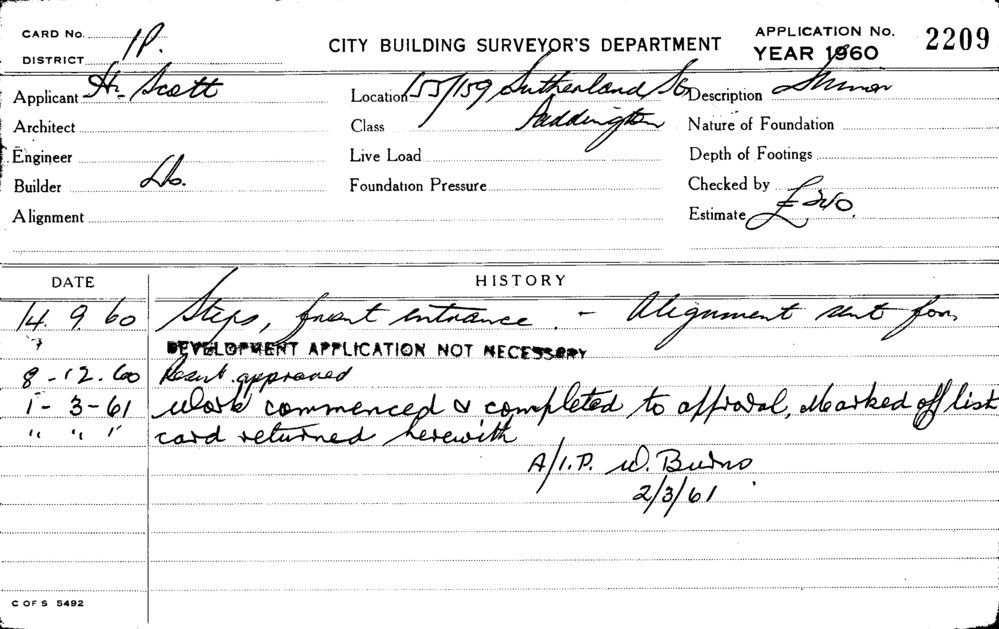 CARD No.
DISTRICT 1P.
CITY BUILDING SURVEYOR'S DEPARTMENT
APPLICATION No. 2209
YEAR 1960
Applicant H. Scott
Location 155/159 Sutherland St
Description Minor
Architect
Class Paddington
Nature of Foundation
Engineer
Live Load
Depth of Footings
Builder Do.
Foundation Pressure
Checked by
Alignment
Estimate £240.
DATE HISTORY
14. 9 60 Steps, front entrance. - Alignment sent for.
DEVELOPMENT APPLICATION NOT NECESSARY
8 - 12. 60 approved
1 - 3 - 61 Work commenced & completed to approval, Marked off list
" " " card returned herewith
A/I.P. W. Burns
2/3/61
C OF S 5492